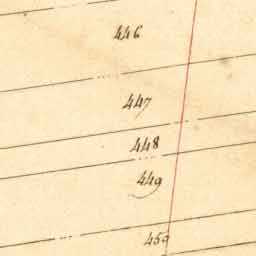 446
447
448
449
450